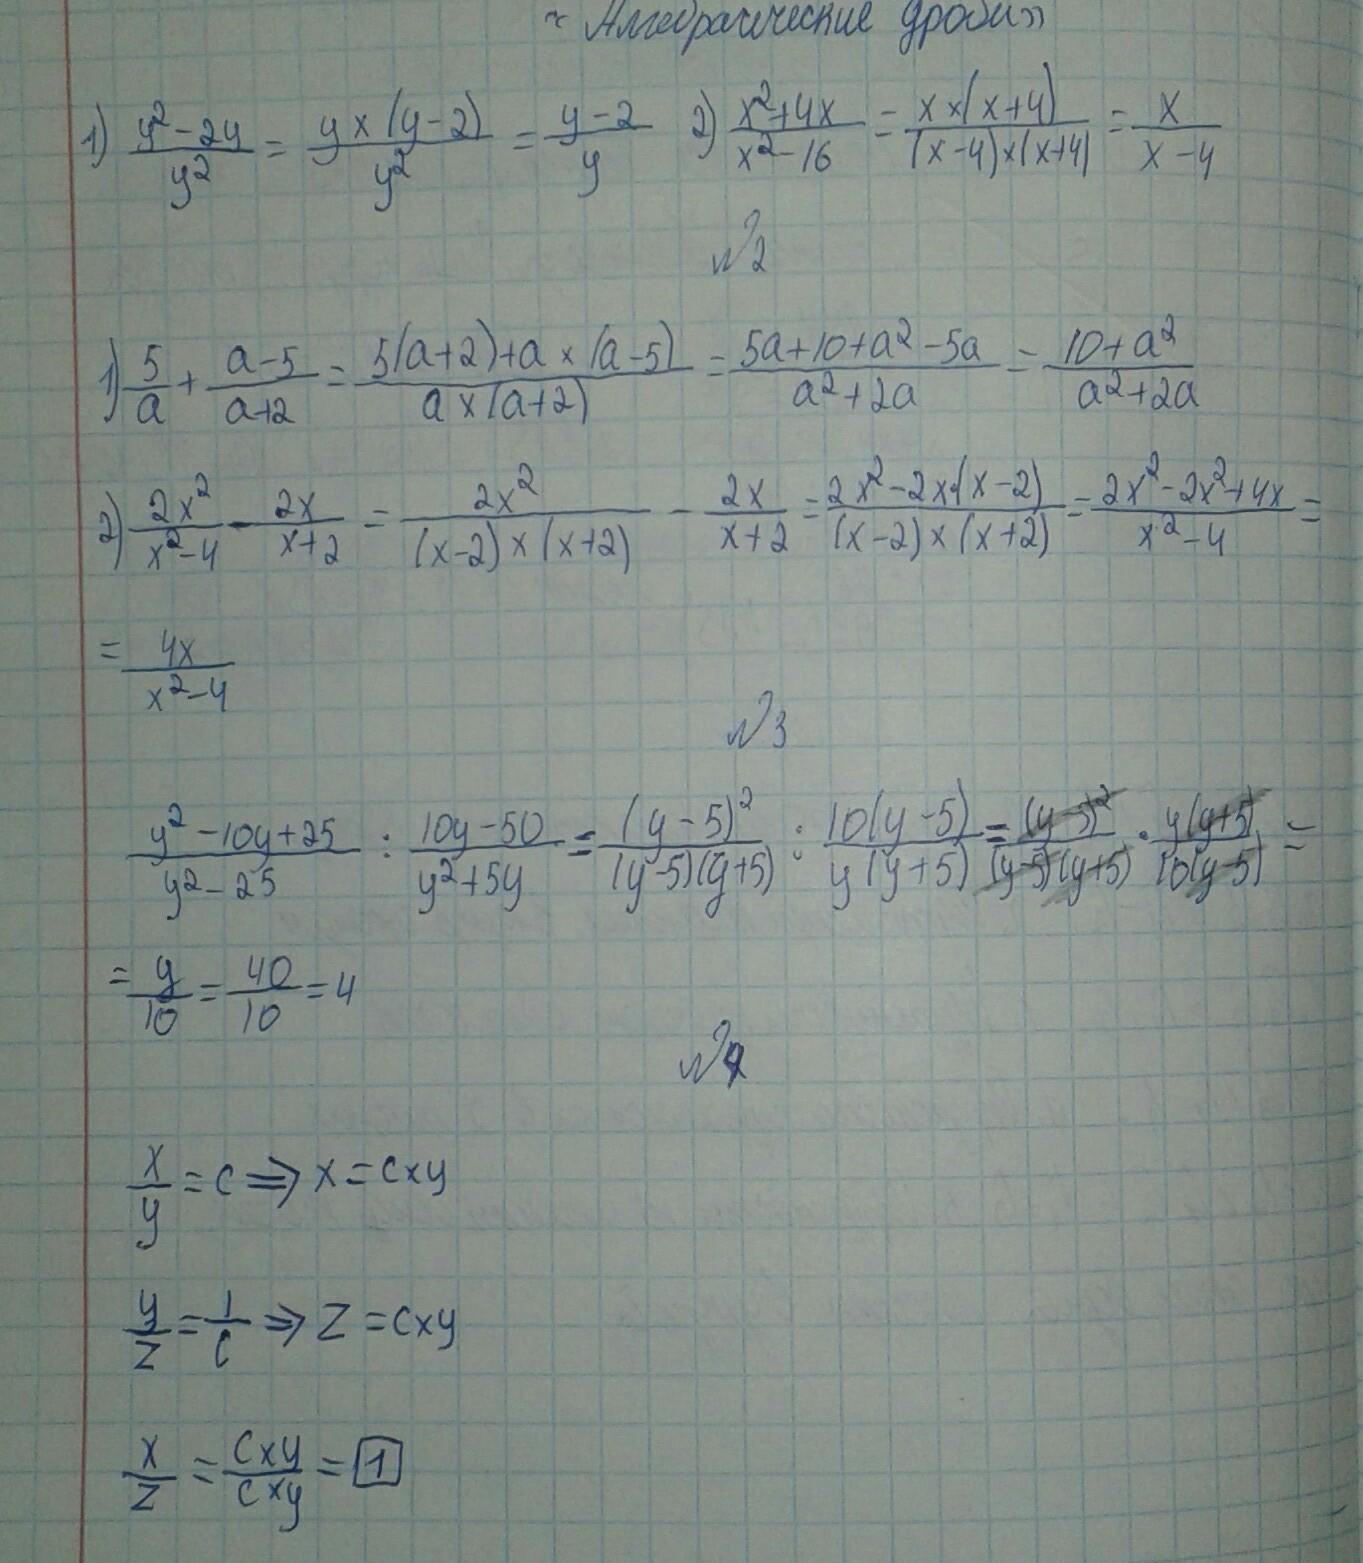 « Алгебраические дроби»
1) \frac{y^2-2y}{y^2} = \frac{y×(y-2)}{y^2} = \frac{y-2}{y} 2) \frac{x^2+4x}{x^2-16} = \frac{x×(x+4)}{(x-4)×(x+4)} = \frac{x}{x-4}
№2
1) \frac{5}{a} + \frac{a-5}{a+2} = \frac{5(a+2)+a×(a-5)}{a×(a+2)} = \frac{5a+10+a^2-5a}{a^2+2a} = \frac{10+a^2}{a^2+2a}
2) \frac{2x^2}{x^2-4} - \frac{2x}{x+2} = \frac{2x^2}{(x-2)×(x+2)} - \frac{2x}{x+2} = \frac{2x^2-2x·(x-2)}{(x-2)×(x+2)} = \frac{2x^2-2x^2+4x}{x^2-4} =
= \frac{4x}{x^2-4}
№3
\frac{y^2-10y+25}{y^2-25} : \frac{10y-50}{y^2+5y} = \frac{(y-5)^2}{(y-5)(y+5)} : \frac{10(y-5)}{y(y+5)} = \frac{(y-5)^2}{(y-5)(y+5)} · \frac{y(y+5)}{10(y-5)} =
= \frac{y}{10} = \frac{40}{10} = 4
№4
\frac{x}{y} = c ⇒ x = c×y
\frac{y}{z} = \frac{1}{c} ⇒ z = c×y
\frac{x}{z} = \frac{c×y}{c×y} = 1